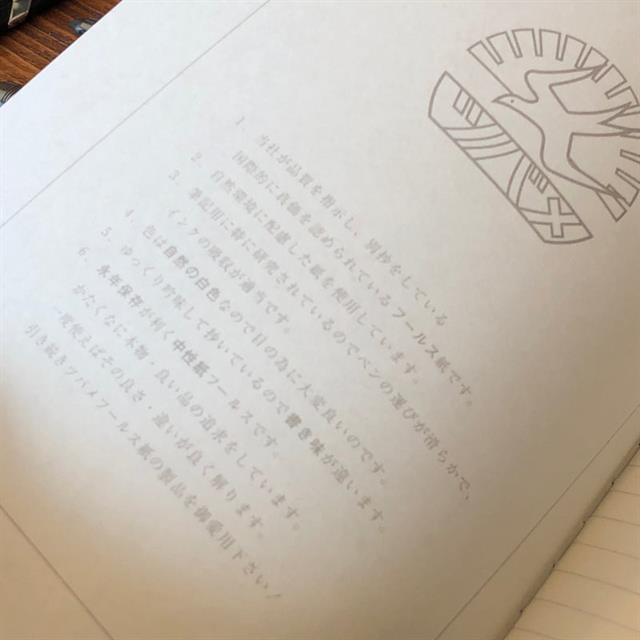 ツバメ
1. 当社が品質を指示し、別抄をしている
国際的に真価を認められているフールス紙です。
2. 自然環境に配慮した紙を使用しています。
3. 筆記用に特に研究されているのでペンの運びが滑らかで、
インクの吸収が適当です。
4. 色は自然の白色なので目の為に大変良いのです。
5. ゆっくり して抄いているので書き味が違います。
6. 永年保存が利く中性紙フールスです。
かたくなに本物・良い品の追求をしています。
一度使えばその良さ・違いが良く解ります。
引き続きツバメフールス紙の製品を御愛用下さい！